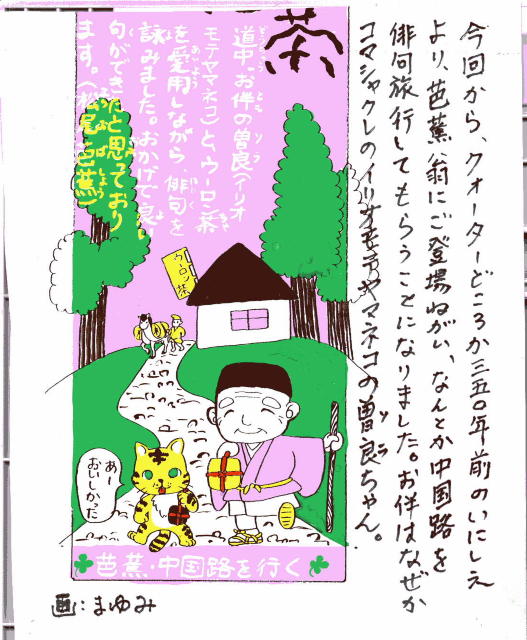 今回から、クォーターどころか三五〇年前のいにしえ
より、芭蕉翁にご登場ねがい、なんとか中国路を
俳句旅行してもらうことになりました。お伴はなぜか
コマシャクレのイリオモテヤマネコの曽良ちゃん。
茶
道中、お伴の曽良(イリオ
モテヤマネコ)と、ウーロン茶
を愛用しながら俳句を
詠みました。おかげで良い
句ができたと思っており
ます。(松尾芭蕉)
ウーロン茶
あー
おいしかった
芭蕉・中国路を行く
画:まゆみ